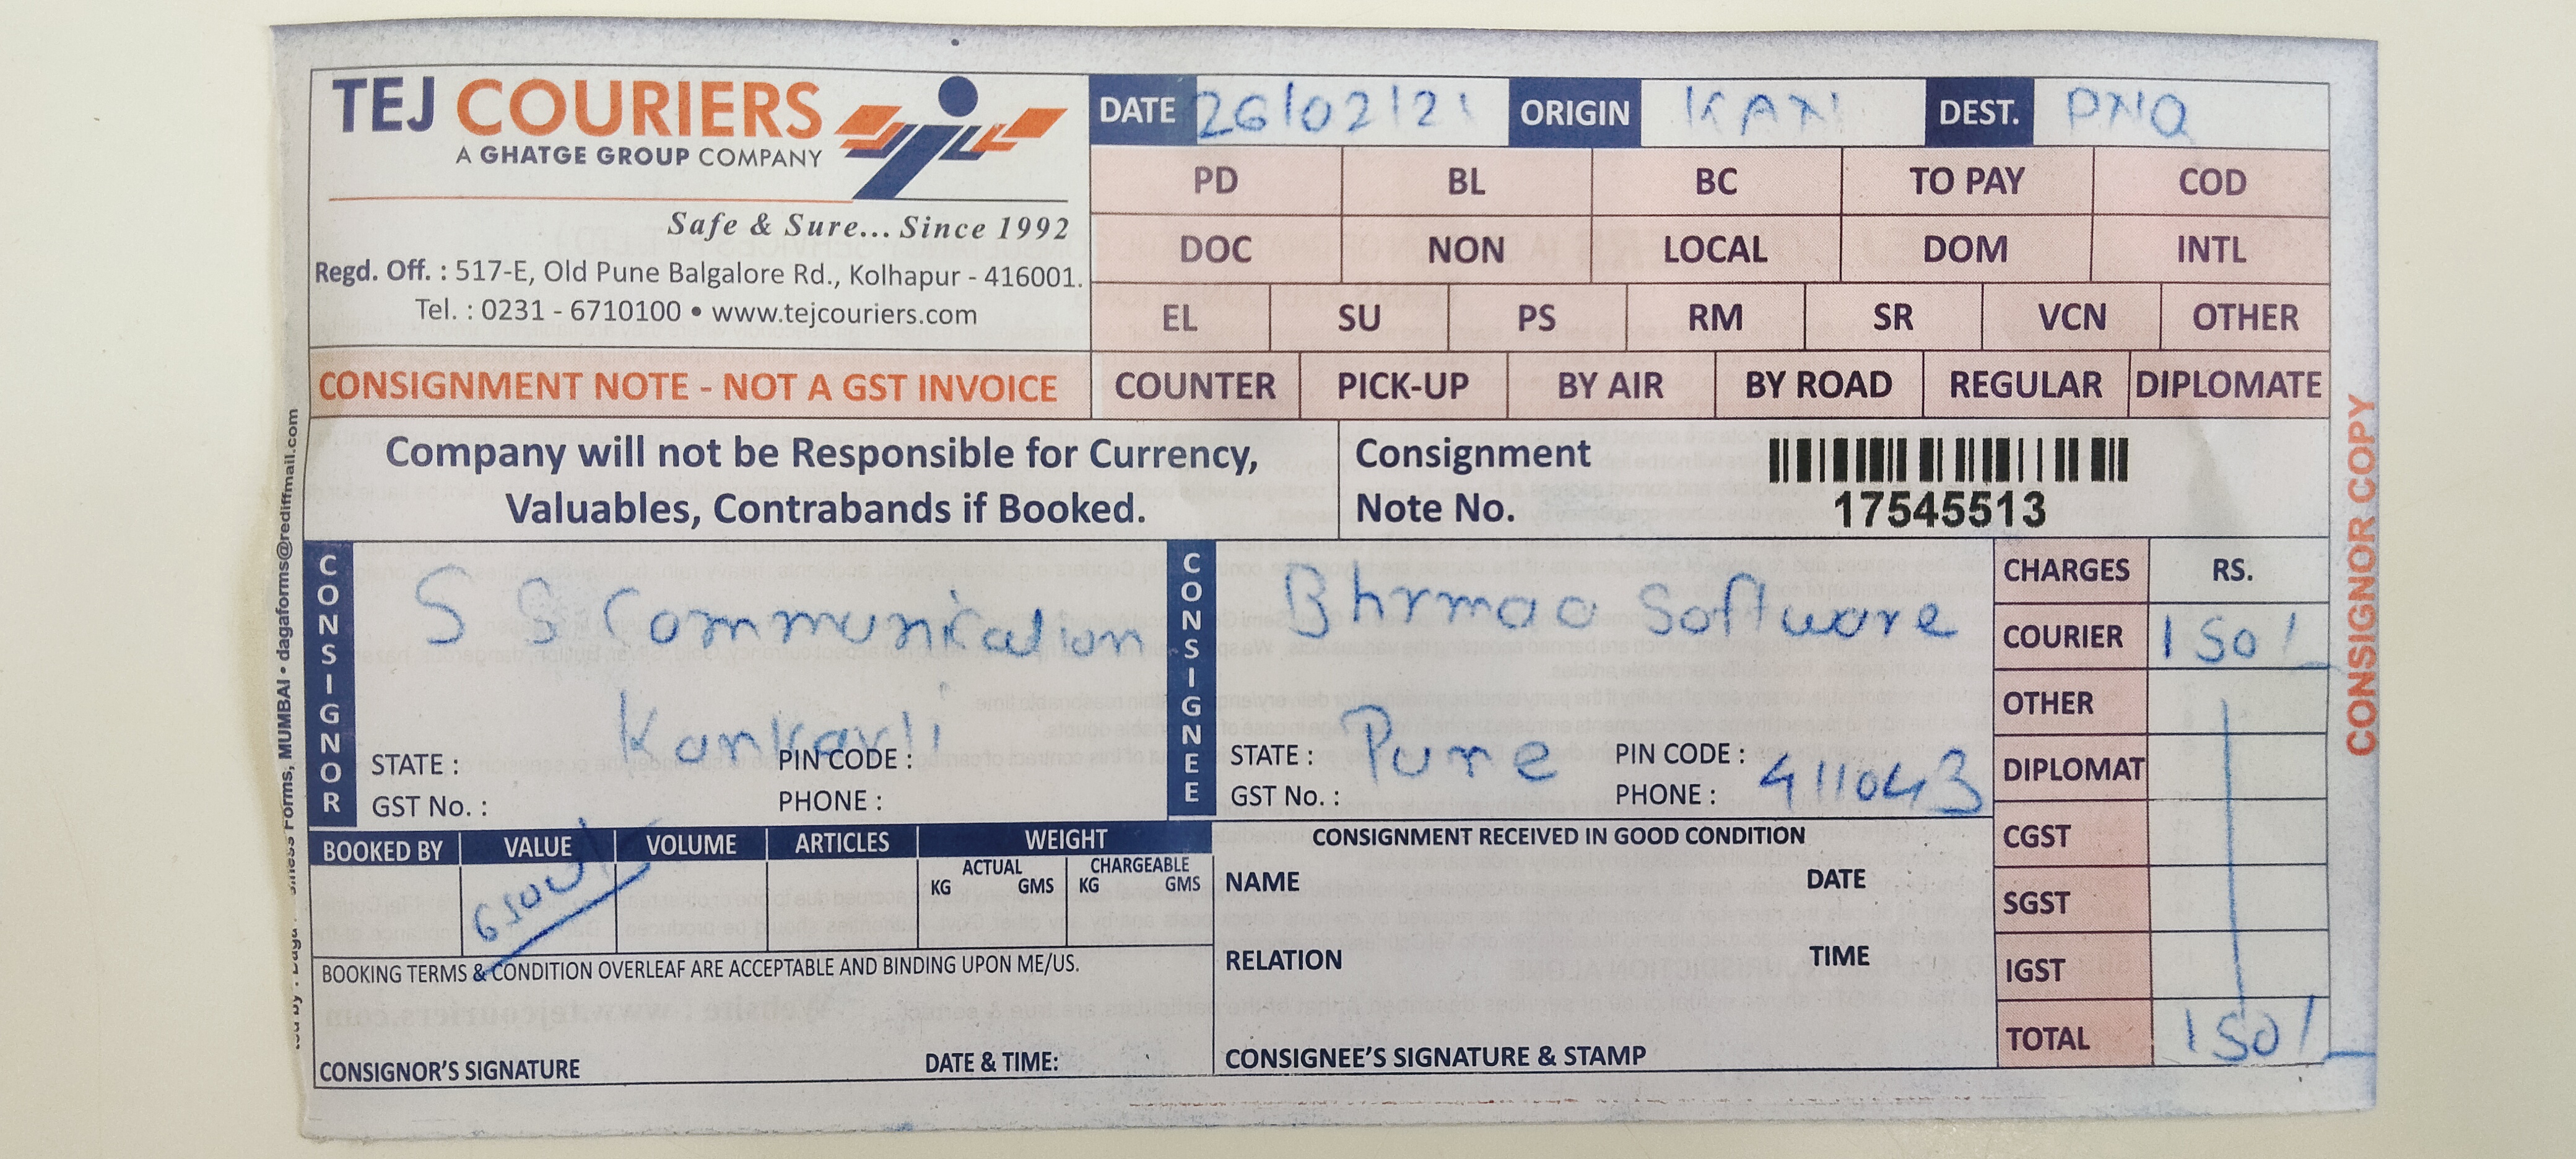 TEJ COURIERS
A GHATGE GROUP COMPANY
Safe & Sure... Since 1992
Regd. Off. : 517-E, Old Pune Balgalore Rd., Kolhapur - 416001.
Tel. : 0231 - 6710100 • www.tejcouriers.com
CONSIGNMENT NOTE - NOT A GST INVOICE
DATE 26/02/21 ORIGIN KAN DEST. PNQ
PD BL BC TO PAY COD
DOC NON LOCAL DOM INTL
EL SU PS RM SR VCN OTHER
COUNTER PICK-UP BY AIR BY ROAD REGULAR DIPLOMATE
Company will not be Responsible for Currency,
Valuables, Contrabands if Booked.
Consignment
Note No.
17545513
CONSIGNOR
S S Communication
Kankavli
STATE : PIN CODE :
GST No. : PHONE :
CONSIGNEE
Bhrmaa Software
STATE : Pune PIN CODE : 411043
GST No. : PHONE :
CHARGES RS.
COURIER 150/-
OTHER
DIPLOMAT
CGST
SGST
IGST
TOTAL 150/-
BOOKED BY VALUE VOLUME ARTICLES WEIGHT
ACTUAL CHARGEABLE
KG GMS KG GMS
BOOKING TERMS & CONDITION OVERLEAF ARE ACCEPTABLE AND BINDING UPON ME/US.
CONSIGNOR'S SIGNATURE DATE & TIME:
CONSIGNMENT RECEIVED IN GOOD CONDITION
NAME DATE
RELATION TIME
CONSIGNEE'S SIGNATURE & STAMP
CONSIGNOR COPY
Forms, MUMBAI • dagaforms@rediffmail.com